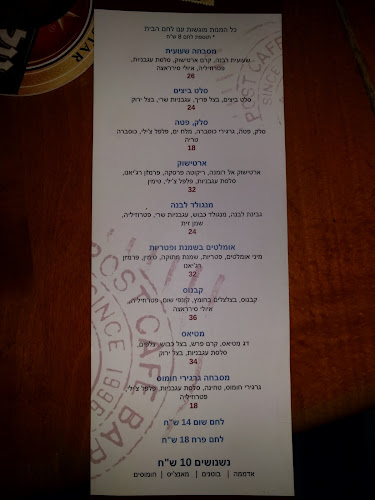 כל המנות מוגשות עם לחם הבית
* תוספת לחם 8 ש"ח
מסבחה שעועית
שעועית לבנה, קרם ארטישוק, סלסת עגבניות,
פטרוזיליה, איולי סיראצ'ה
26
סלט ביצים
סלט ביצים, בצל פריך, עגבניות שרי, בצל ירוק
24
סלק, פטה
סלק, פטה, גרגירי כוסברה, מלח ים, פלפל צ'ילי, כוסברה
טריה
18
ארטישוק
ארטישוק אל רומנה, ריקוטה פרסקה, פרמזן רג'יאנו,
סלסת עגבניות, פלפל צ'ילי, טימין
32
מנגולד לבנה
גבינת לבנה, מנגולד כבוש, עגבניות שרי, פטרוזיליה,
שמן זית
24
אומלטים בשמנת ופטריות
מיני אומלטים, פטריות, שמנת מתוקה, טימין, פרמזן
רג'יאנו
32
קבנוס
קבנוס, בצלצלים בחומץ, קונפי שום, פטרוזיליה,
איולי סיראצ'ה
36
מטיאס
דג מטיאס, קרם פרש, בצל כבוש, צלפים,
סלסת עגבניות, בצל ירוק
34
מסבחה גרגירי חומוס
גרגירי חומוס, טחינה, סלסת עגבניות, פלפל צ'ילי,
פטרוזיליה
18
לחם שום 14 ש"ח
לחם פרח 18 ש"ח
נשנושים 10 ש"ח
אדממה | בוטנים | מאנצ'יס | חמוצים
POST CAFE BAR
SINCE 1996
POST CAFE
SINCE
BAR